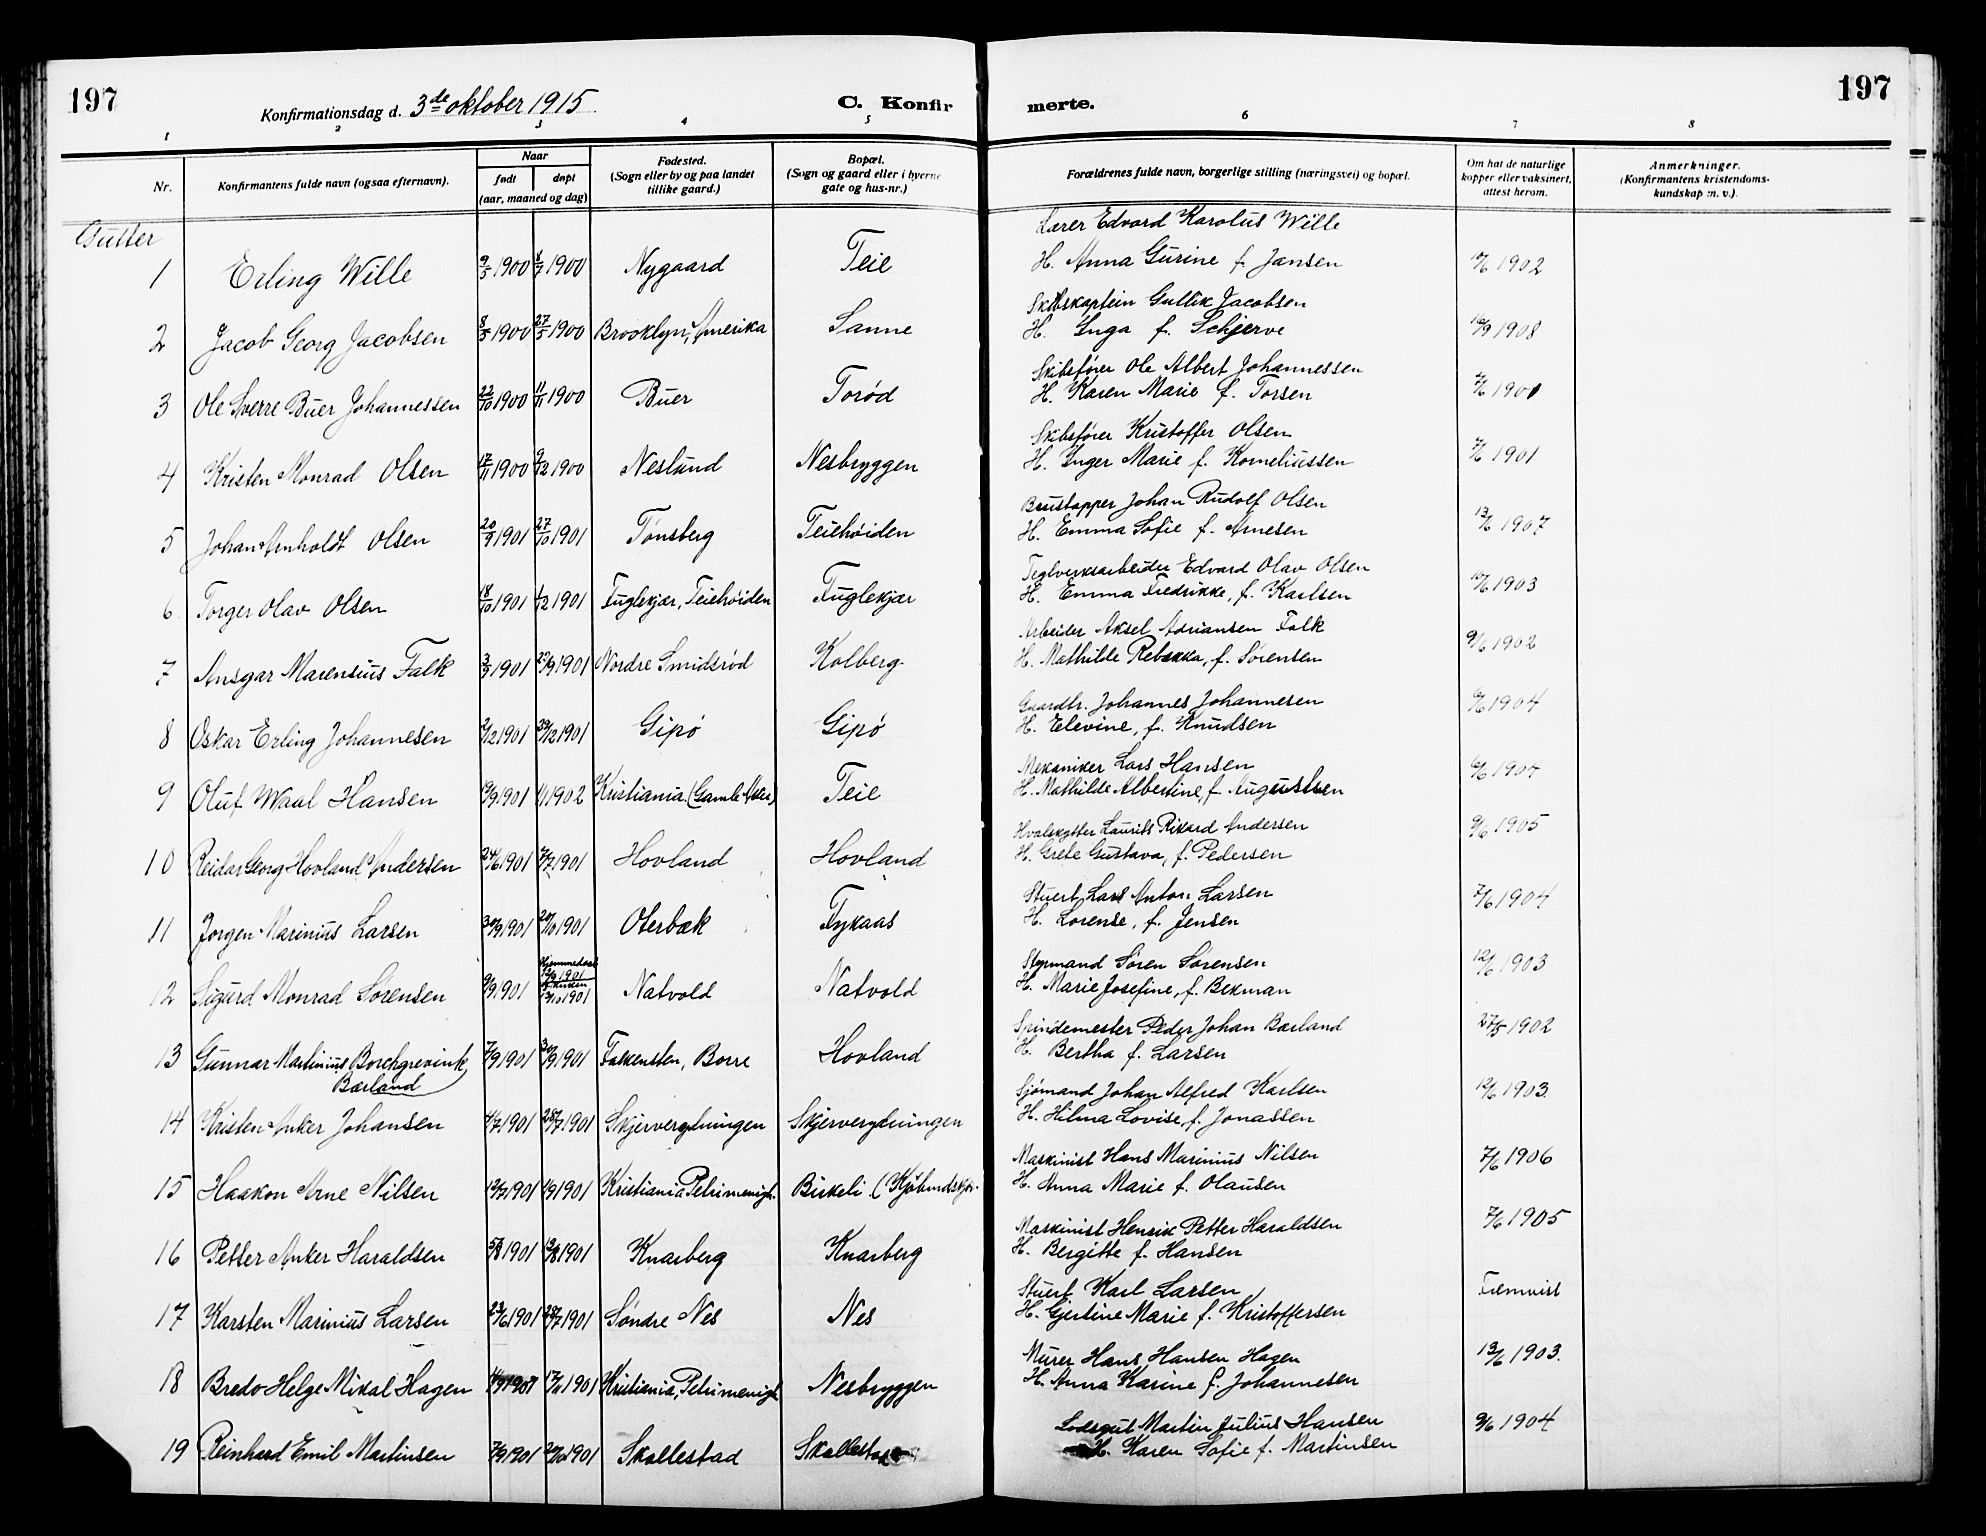 197
Konfirmationsdag d. 3de oktober 1915
C. Konfir
merte.
197
1 2 3 4 5 6 7 8
Nr.
Konfirmantens fulde navn (ogsaa efternavn).
Naar
født
døpt
(aar, maaned og dag)
Fødested.
(Sogn eller by og paa landet
tillike gaard.)
Bopæl.
(Sogn og gaard eller i byerne
gate og hus-nr.)
Forældrenes fulde navn, borgerlige stilling (næringsvei) og bopæl.
Om hat de naturlige
kopper eller vaksinert,
attest herom.
Anmerkninger.
(Konfirmantens kristendoms-
kundskap m. v.).
Gutter
Lærer Edvard Karolus Wille
1 Erling Wille 9/5 1900 8/7 1900 Nygaard Teie H. Anna Gurine f. Jansen 1902
Skibskaptein Gullik Jacobsen
2 Jacob Georg Jacobsen 8/3 1900 27/5 1900 Brooklyn, Amerika Sanne H. Inga f. Schjerve 1908
Skibsfører Ole Albert Johannessen
3 Ole Sverre Buer Johannessen 22/10 1900 11/11 1900 Buer Torød H. Karen Marie f. Torsen 1901
Skibsfører Kristoffer Olsen
4 Kristen Monrad Olsen 17/11 1900 9/12 1900 Neslund Nesbryggen H. Inger Marie f. Korneliussen 1901
Johan Rudolf Olsen
5 Johan Arnholdt Olsen 20/9 1901 27/10 1901 Tønsberg Teiehøiden H. Emma Sofie f. Arnesen 13/6 1907
Teglverksarbeider Edvard Olav Olsen
6 Torger Olav Olsen 18/10 1901 1/12 1901 Fuglekjær, Teiehøiden Fuglekjær H. Emma Fredrikke, f. Karlsen 10/6 1903
Arbeider Aksel Adriansen Falk
7 Ansgar Marensius Falk 3/9 1901 29/9 1901 Nordre Smidsrød Kolberg H. Mathilde Rebekka, f. Sørensen 9/6 1902
Gaardbr. Johannes Johannesen
8 Oskar Erling Johannesen 2/12 1901 29/12 1901 Gipø Gipø H. Elevine, f. Knudsen 1904
Mekaniker Lars Hansen
9 Oluf Waal Hansen 19/9 1901 1/1 1902 Kristiania (Gamle Aker) Teie H. Mathilde Albertine, f. Augustsen 1904
Hvalskytter Laurits Rikard Andersen
10 Reidar Georg Hovland Andersen 24/6 1901 7/7 1901 Hovland Hovland H. Grete Gustava, f. Pedersen 9/6 1905
Stuert Lars Anton Larsen
11 Jørgen Marinius Larsen 30/9 1901 20/10 1901 Oterbæk Tykaas H. Lorense, f. Jensen 7/6 1904
Hjemmedøpt
12/9 1901
i kirken
Styrmand Søren Sørensen
12 Sigurd Monrad Sørensen 9/9 1901 13/10 1901 Natvold Natvold H. Marie Josefine, f. Bekman 12/6 1903
Peder Johan Bærland
13 Gunnar Martinius Borchgrevink Bærland 7/9 1901 1901 Falkensten, Borre Hovland H. Bertha f. Larsen 27/5 1902
Sjømand Johan Alfred Karlsen
14 Kristen Anker Johansen 4/7 1901 28/7 1901 Skjerverydningen Skjerverydningen H. Hilma Lovise, f. Jonassen 12/6 1903
Maskinist Hans Marinius Nilsen
15 Haakon Arne Nilsen 12/7 1901 1/9 1901 Kristiania Petrimenigh. Birkeli H. Anna Marie f. Olausen 7/6 1906
Maskinist Henrik Petter Haraldsen
16 Petter Anker Haraldsen 5/8 1901 1901 Knarberg Knarberg H. Bergitte f. Hansen 7/6 1905
Stuert Karl Larsen
17 Karsten Marinius Larsen 23/6 1901 28/7 1901 Søndre Nes Nes H. Gjertine Marie f. Kristoffersen Fremvist
Murer Hans Hansen Hagen
18 Bredo Helge Mikal Hagen 1901 17/11 1901 Kristiania, Petrimenigh. Nesbryggen H. Anna Karine f. Johannesen 13/6 1903
Losgut Martin Julius Hansen
19 Reinhard Emil Martinsen 7/9 1901 20/10 1901 Skallestad Skallestad H. Karen Sofie f. Martinsen 9/6 1904